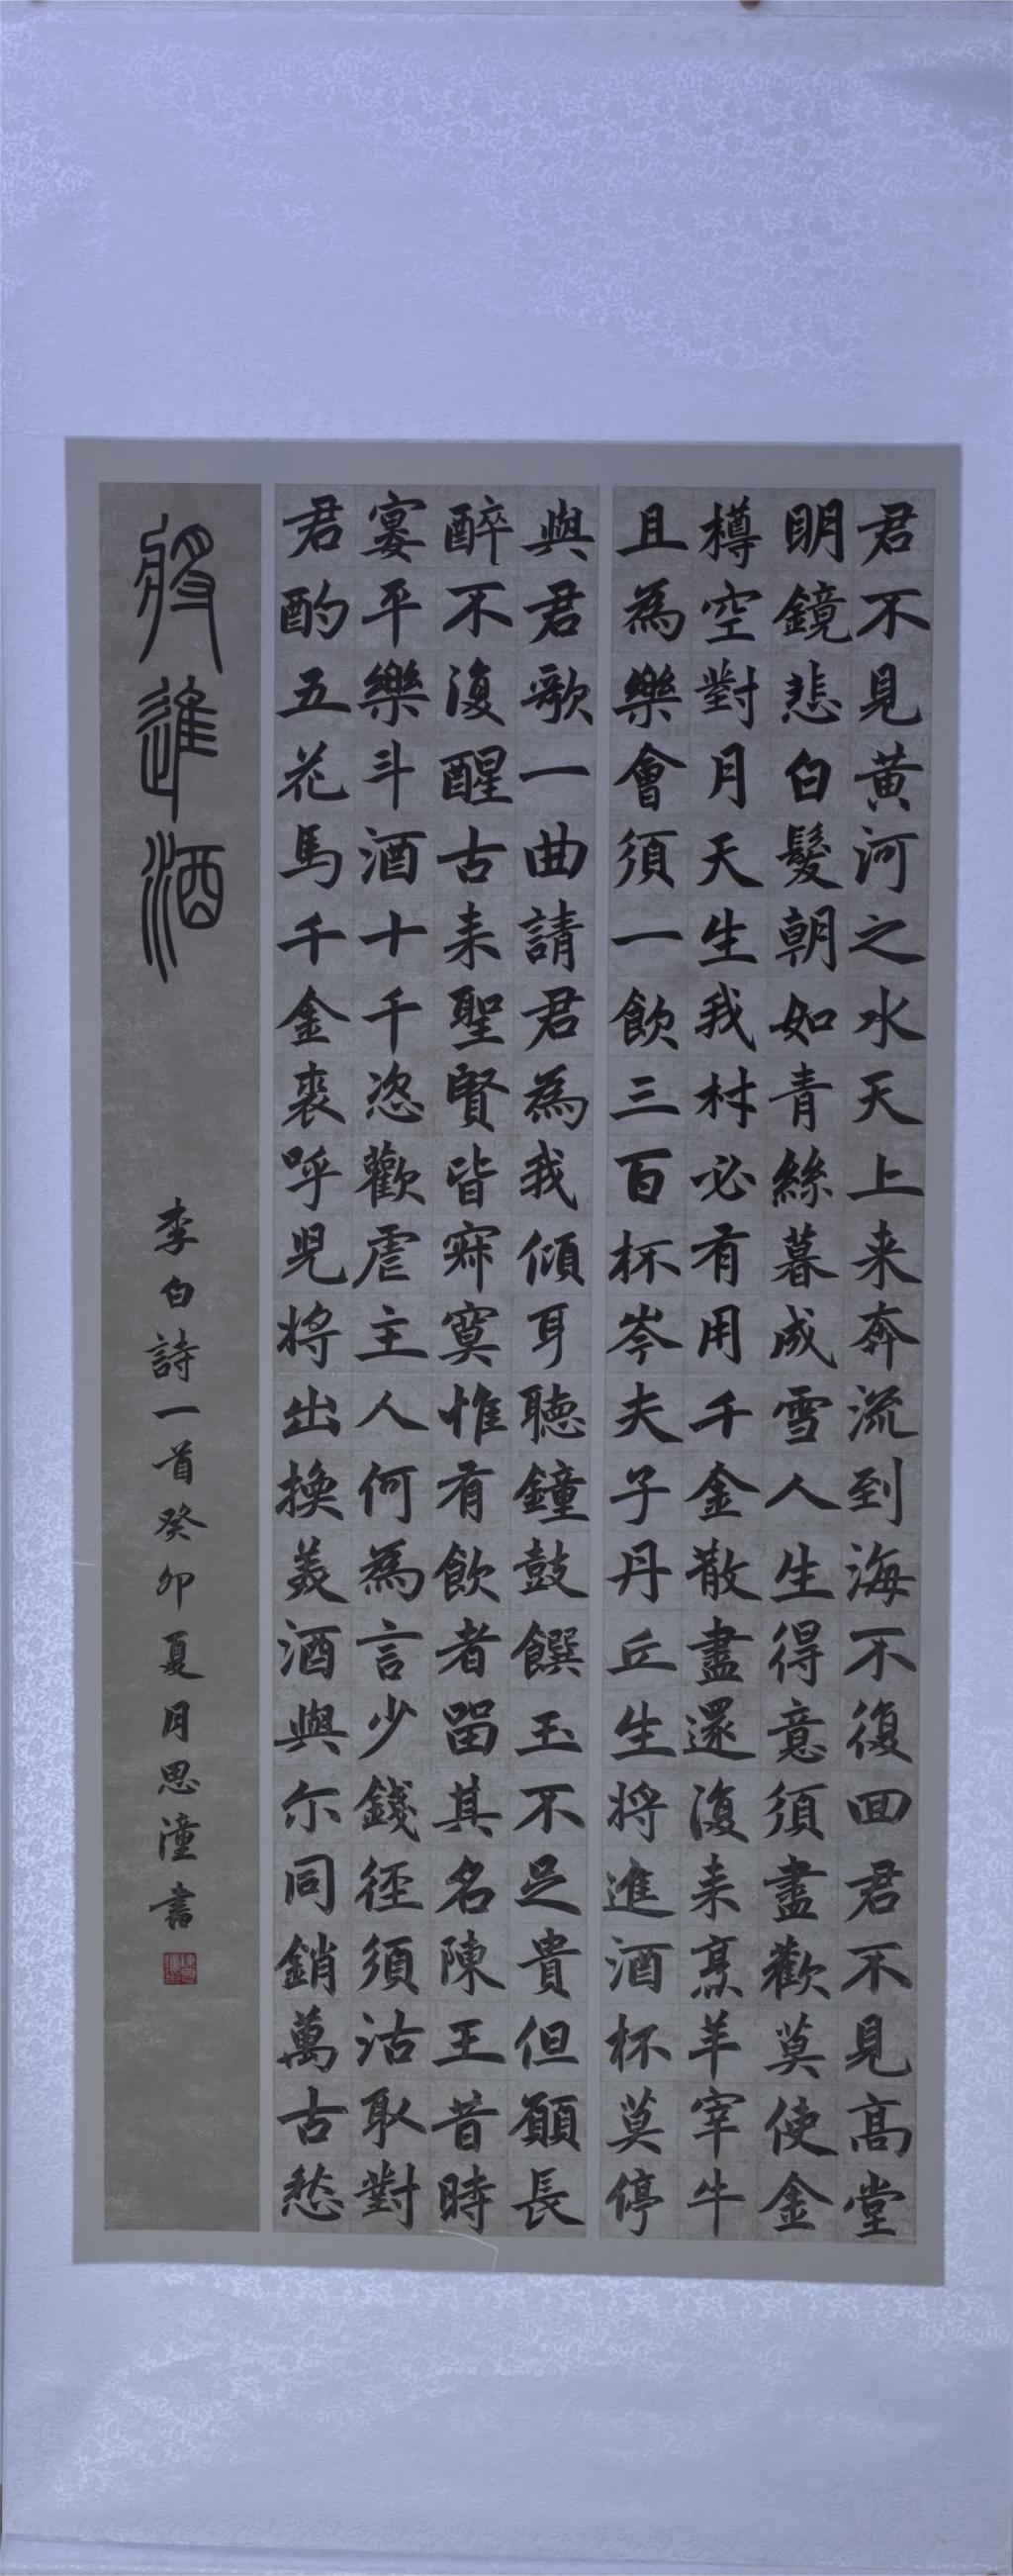 君不見黃河之水天上来奔流到海不復回君不見高堂
明鏡悲白髮朝如青絲暮成雪人生得意須盡歡莫使金
樽空對月天生我材必有用千金散盡還復来烹羊宰牛
且為樂會須一飲三百杯岑夫子丹丘生將進酒杯莫停
與君歌一曲請君為我傾耳聽鐘鼓饌玉不足貴但願長
醉不復醒古来聖賢皆寂寞惟有飲者留其名陳王昔時
宴平樂斗酒十千恣歡虐主人何為言少錢徑須沽取對
君酌五花馬千金裘呼兒將出換美酒與尔同銷萬古愁
將進酒
李白詩一首癸卯夏月思潼書